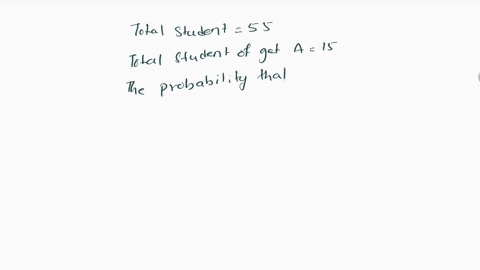 Total Student = 55
Total Student of get A = 15
The probability that